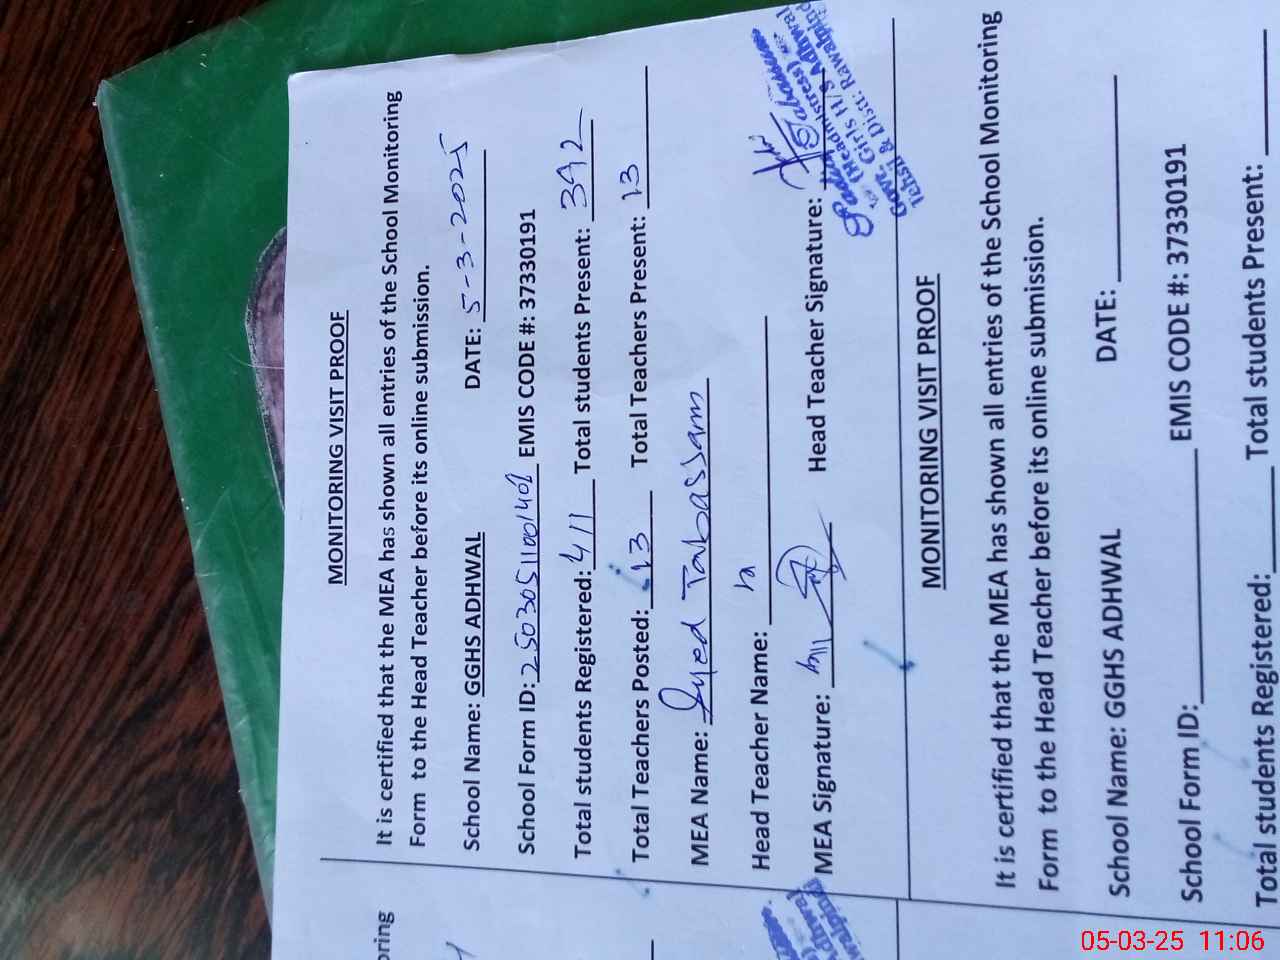 MONITORING VISIT PROOF
It is certified that the MEA has shown all entries of the School Monitoring
Form to the Head Teacher before its online submission.
School Name: GGHS ADHWAL DATE: 5-3-2025
School Form ID: 2503051100140 EMIS CODE #: 37330191
Total students Registered: 411 Total students Present: 392
Total Teachers Posted: 13 Total Teachers Present: 13
MEA Name: Syed Tabassam
Head Teacher Name:
MEA Signature: Head Teacher Signature:
(Headmistress)
Govt. Girls H/S Adhwal
Tehsil & Distt: Rawalpindi
MONITORING VISIT PROOF
It is certified that the MEA has shown all entries of the School Monitoring
Form to the Head Teacher before its online submission.
School Name: GGHS ADHWAL DATE:
School Form ID: EMIS CODE #: 37330191
Total students Registered: Total students Present:
05-03-25 11:06